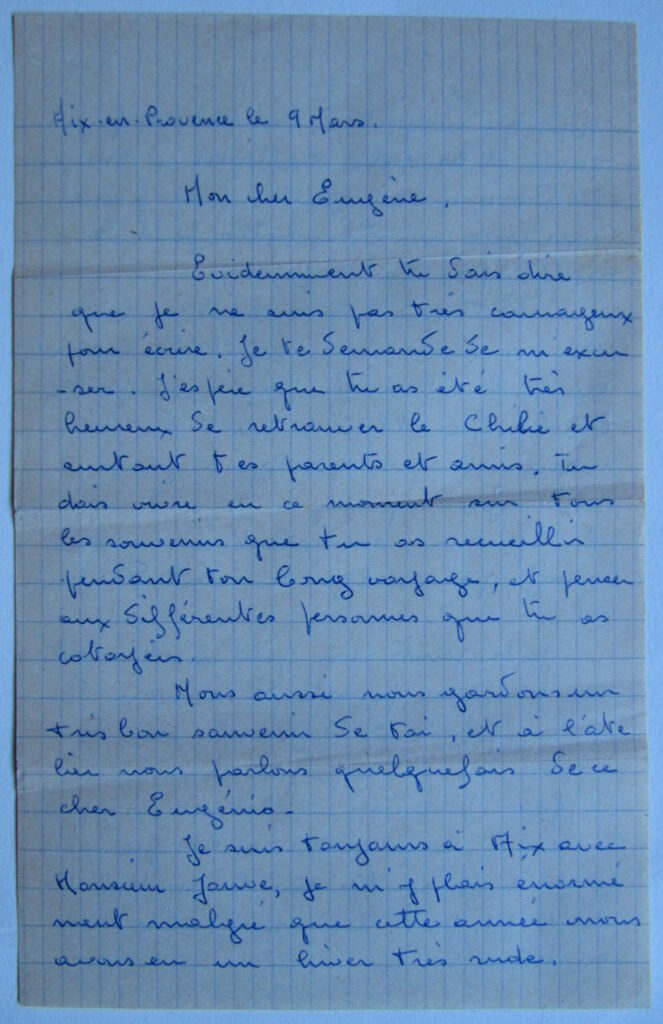 Aix-en-Provence le 9 Mars.
Mon cher Eugène,
Evidemment tu dais dire
que je ne suis pas très courageux
pour écrire. Je te demande de m'excu
-ser. J'espère que tu as été très
heureux de retrouver le Chilie et
surtout tes parents et amis. Tu
dois vivre en ce moment sur tous
les souvenirs que tu as recueillis
pendant ton long voyage, et penser
aux différentes personnes que tu as
cotoyées.
Nous aussi nous gardons un
très bon souvenir de toi, et à l'ate
lier nous parlons quelquefois de ce
cher Eugénio.
Je suis toujours à Aix avec
Monsieur Jauve, je m'y plais énormé
ment malgré que cette année nous
avons eu un hiver très rude.